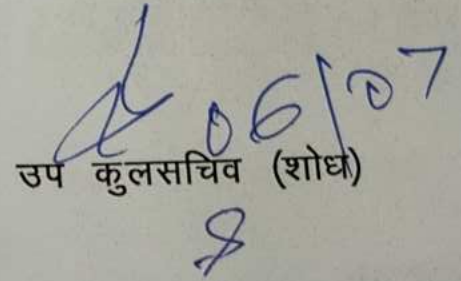 06/07
उप कुलसचिव (शोध)